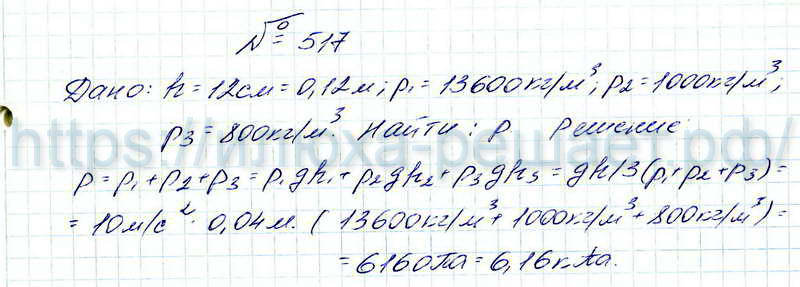 № 517
Дано: h = 12см = 0,12м; ρ₁ = 13600кг/м³; ρ₂ = 1000кг/м³;
ρ₃ = 800кг/м³. Найти: p. Решение:
https://илюха-решает.рф/
p = p₁ + p₂ + p₃ = ρ₁gh₁ + ρ₂gh₂ + ρ₃gh₃ = gh/3(ρ₁ + ρ₂ + ρ₃) =
= 10м/с² · 0,04м · (13600кг/м³ + 1000кг/м³ + 800кг/м³) =
= 6160Па = 6,16кПа.